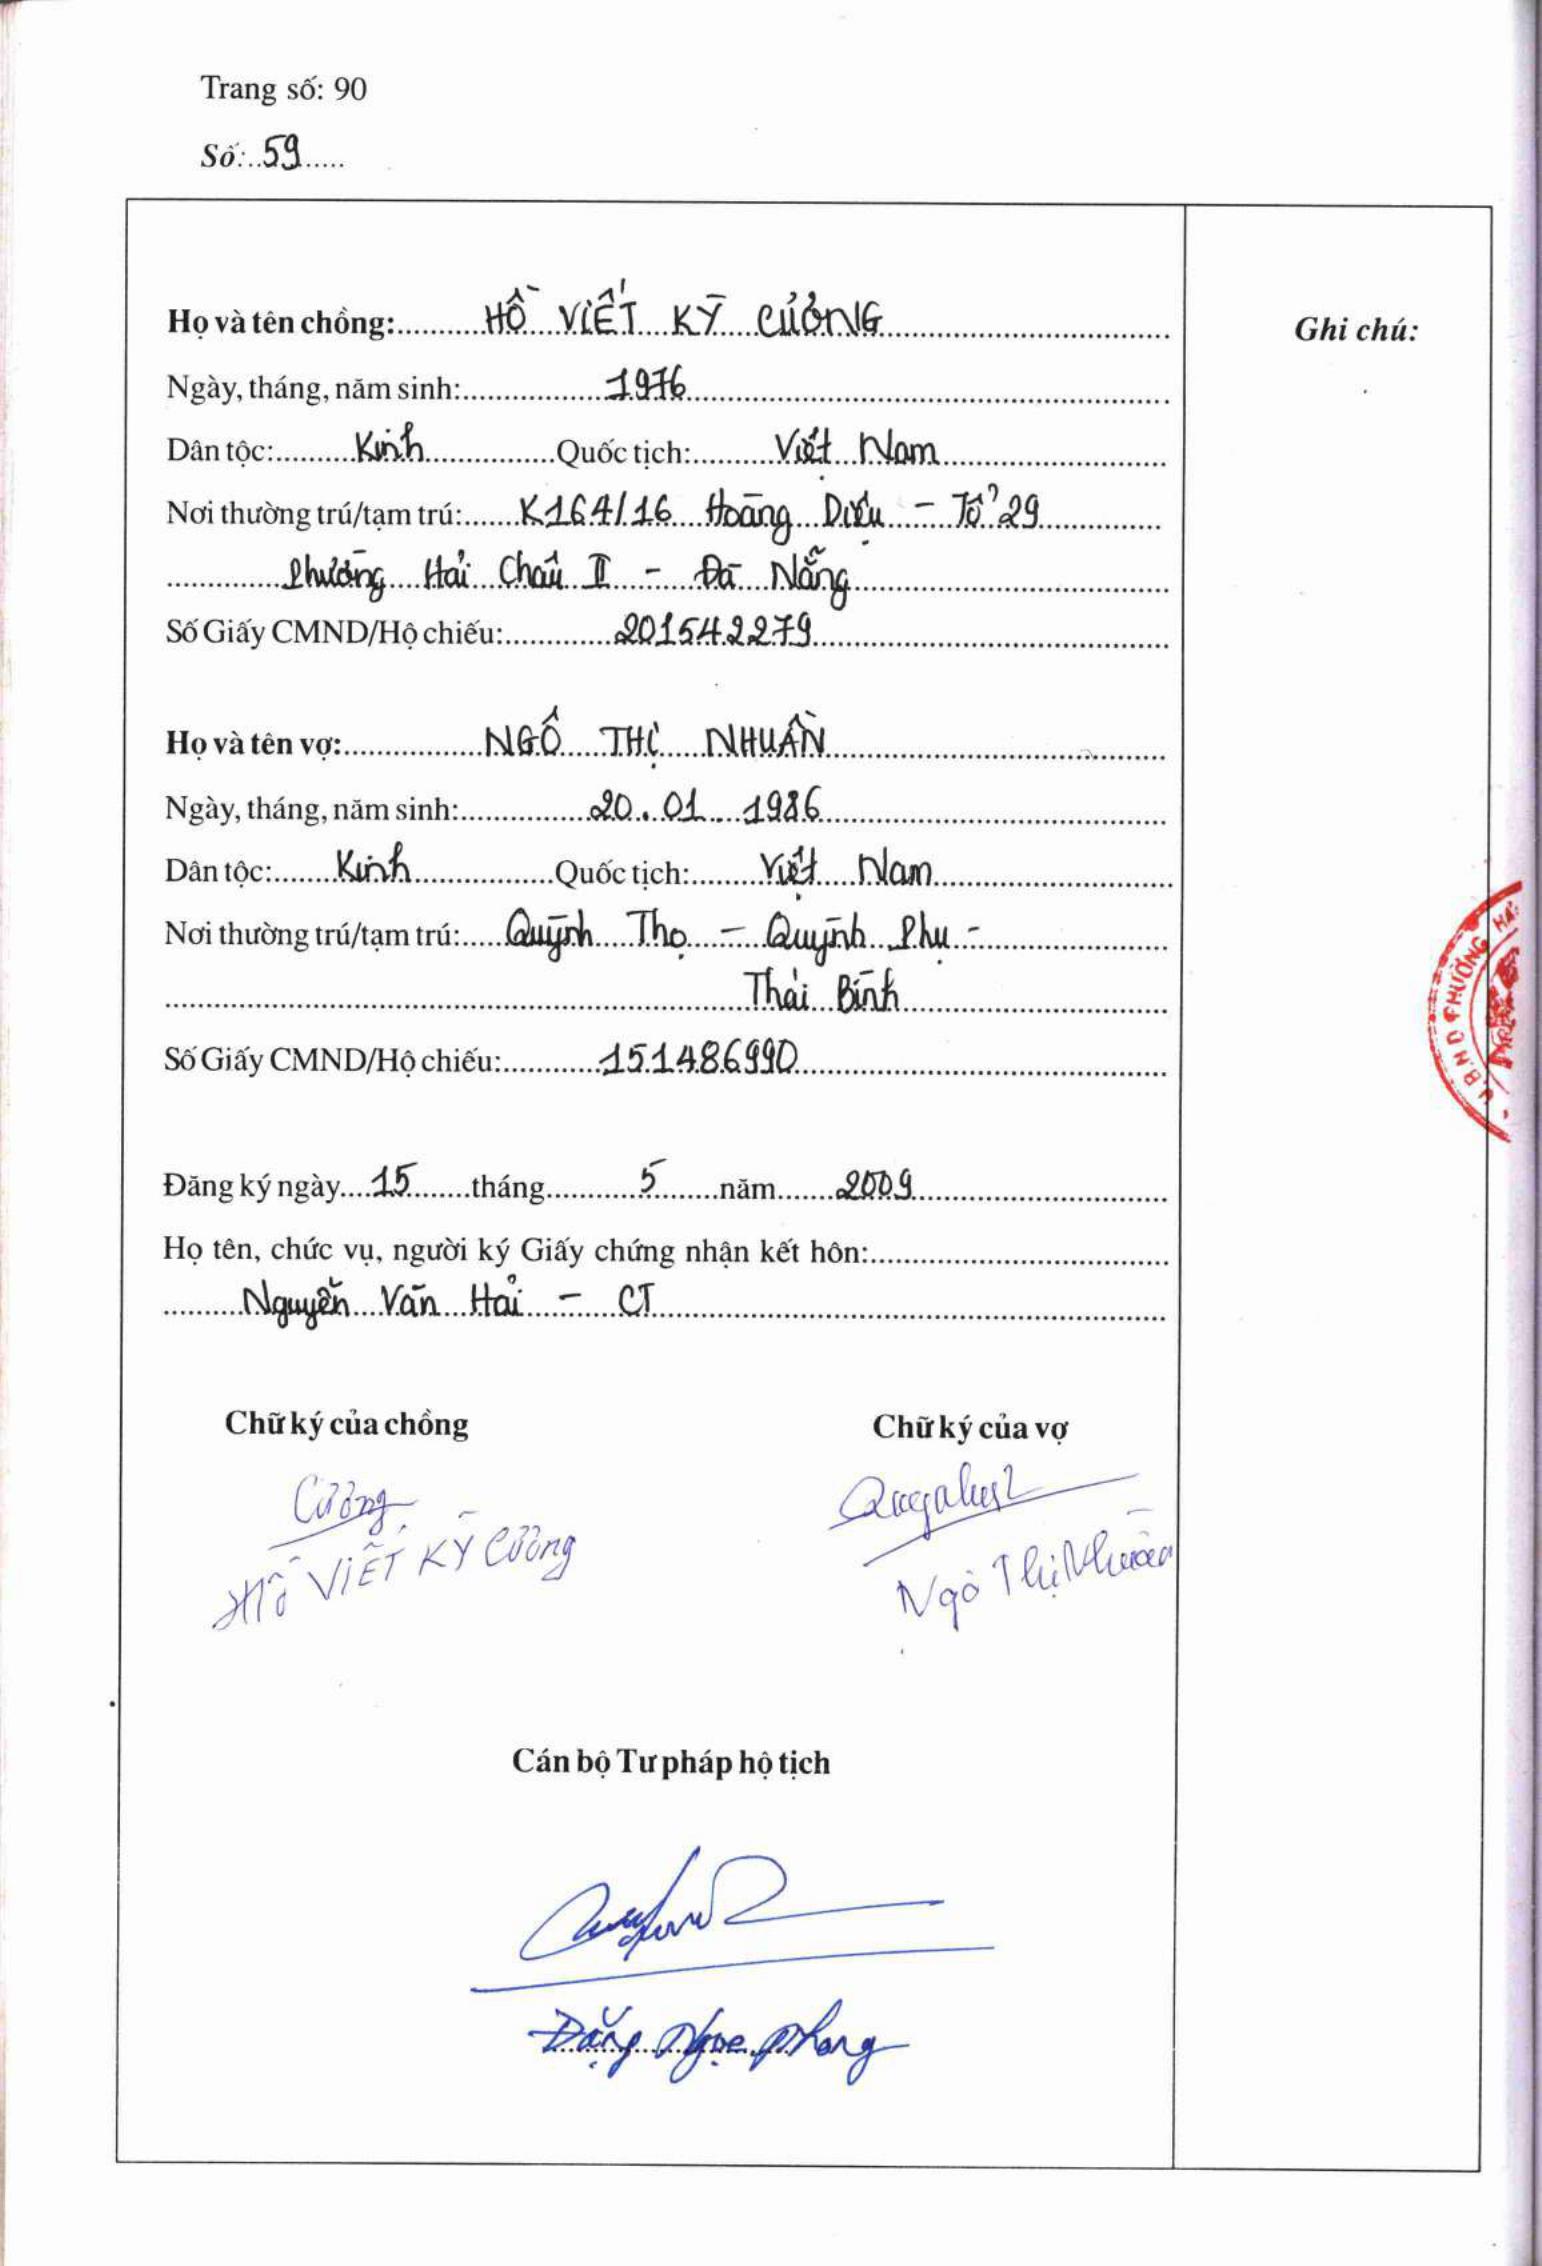 Trang số: 90
Số: 59
Họ và tên chồng: HỒ VIẾT KỲ CƯỜNG
Ghi chú:
Ngày, tháng, năm sinh: 1976
Dân tộc: Kinh Quốc tịch: Việt Nam
Nơi thường trú/tạm trú: K164/16 Hoàng Diệu - Tổ 29
Phường Hải Châu II - Đà Nẵng
Số Giấy CMND/Hộ chiếu: 201542279
Họ và tên vợ: NGÔ THỊ NHUẦN
Ngày, tháng, năm sinh: 20.01.1986
Dân tộc: Kinh Quốc tịch: Việt Nam
Nơi thường trú/tạm trú: Quỳnh Thọ - Quỳnh Phụ -
Thái Bình
Số Giấy CMND/Hộ chiếu: 151486990
U.B.N.D PHƯỜNG HẢI
Đăng ký ngày 15 tháng 5 năm 2009
Họ tên, chức vụ, người ký Giấy chứng nhận kết hôn:
Nguyễn Văn Hải - CT
Chữ ký của chồng Chữ ký của vợ
Cường
HỒ VIẾT KỲ Cường
Ngô Thị Nhuần
Cán bộ Tư pháp hộ tịch
Đặng Ngọc Phong